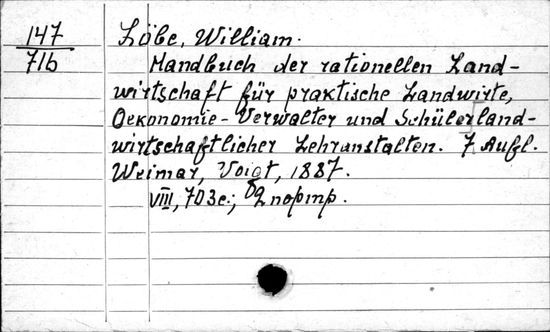 147
716
Löbe, William.
Handbuch der rationellen Land-
wirtschaft für praktische Landwirte,
Oekonomie-Verwalter und Schüler land-
wirtschaftlicher Lehranstalten. 7. Aufl.
Weimar, Voigt, 1887.
VIII, 703 c.; 2 портр.